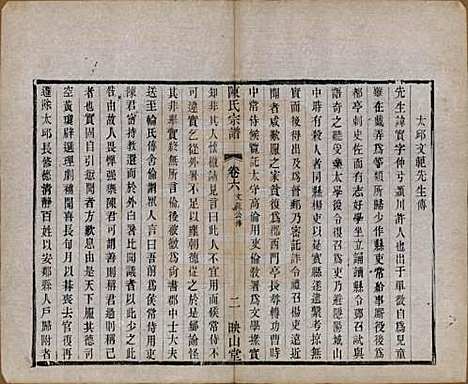 太邱文範先生傳
先生諱實字仲弓潁川許人也出于單微自為兒童
雖在戲弄為等類所歸少作縣吏常給事廝役後為
都亭佐而有志好學坐立誦讀縣令鄧邵試與
語奇之聽受業太學後令復召為吏乃避隱陽城山
中時有殺人者同縣楊吏以疑實縣遂逮繫考掠無
實而後得出及為督郵乃密託許令禮召楊吏遠近
聞者咸歎服之家貧復為郡西門亭長尋轉功曹時
中常侍侯覽託太守高倫用吏倫教署為文學掾實
陳氏宗譜 卷六 文範公傳 二 映山堂
知非其人懷檄請見言曰此人不宜用而侯常侍不
可違實乞從外署不足以塵明德從之於是鄉論怪
其非舉實終無所言倫後被徵為尚書郡中士大夫
送至輪氏傳舍倫謂眾人言曰吾前為侯常侍用吏
陳君密持教還而於外白署比聞議者以此少之此
咎由故人畏憚強禦陳君可謂善則稱君過則稱己
者也實固自引愆聞者方歎息由是天下服其德司
空黃瓊辟選理劇補聞喜長旬月以朞喪去官復再
遷除太邱長修德清靜百姓以安鄰縣人戶歸附者